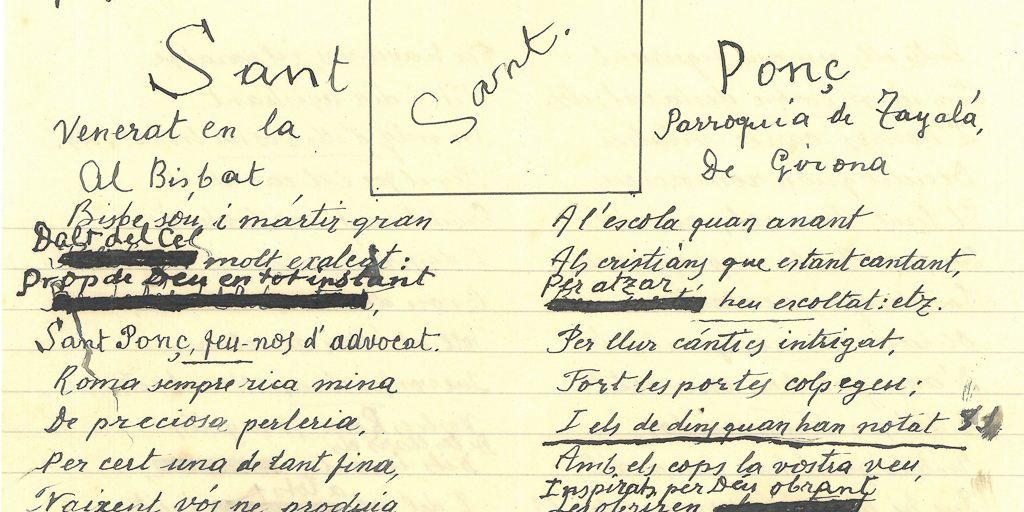 Sant
Sant.
Ponç
Venerat en la
Parroquia de Tayalá,
Al Bisbat
De Girona
Bisbe sóu, i mártir gran
Dalt del Cel
molt exalcit:
Prop de Deu en tot instant
Sant Ponç, feu-nos d'advocat.
Roma sempre rica mina
De preciosa perleria,
Per cert una de tant fina,
Naixent vós ne produia
A l'escola quan anant
Als cristiáns que estant cantant,
Per atzar
heu escoltat: etz.
Per llur cántics intrigat,
Fort les portes colpegeu;
I els de dins quan han notat
Amb els cops la vostra veu,
Inspirats per Deu obrant
Les obriren